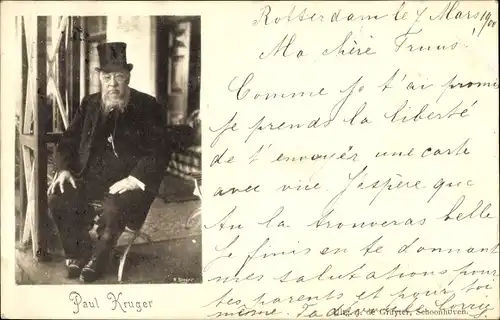 Rotterdam le 7 Mars 1901
Ma chère Truus!
Comme je t'ai promis
je prends la liberté
de t'envoyer une carte
avec vue. J'espère que
tu la trouveras belle
Je finis en te donnant
mes salutations pour
tes parents et pour toi
même. Ta
Paul Kruger
Uitg. d. de Gruyter, Schoonhoven.